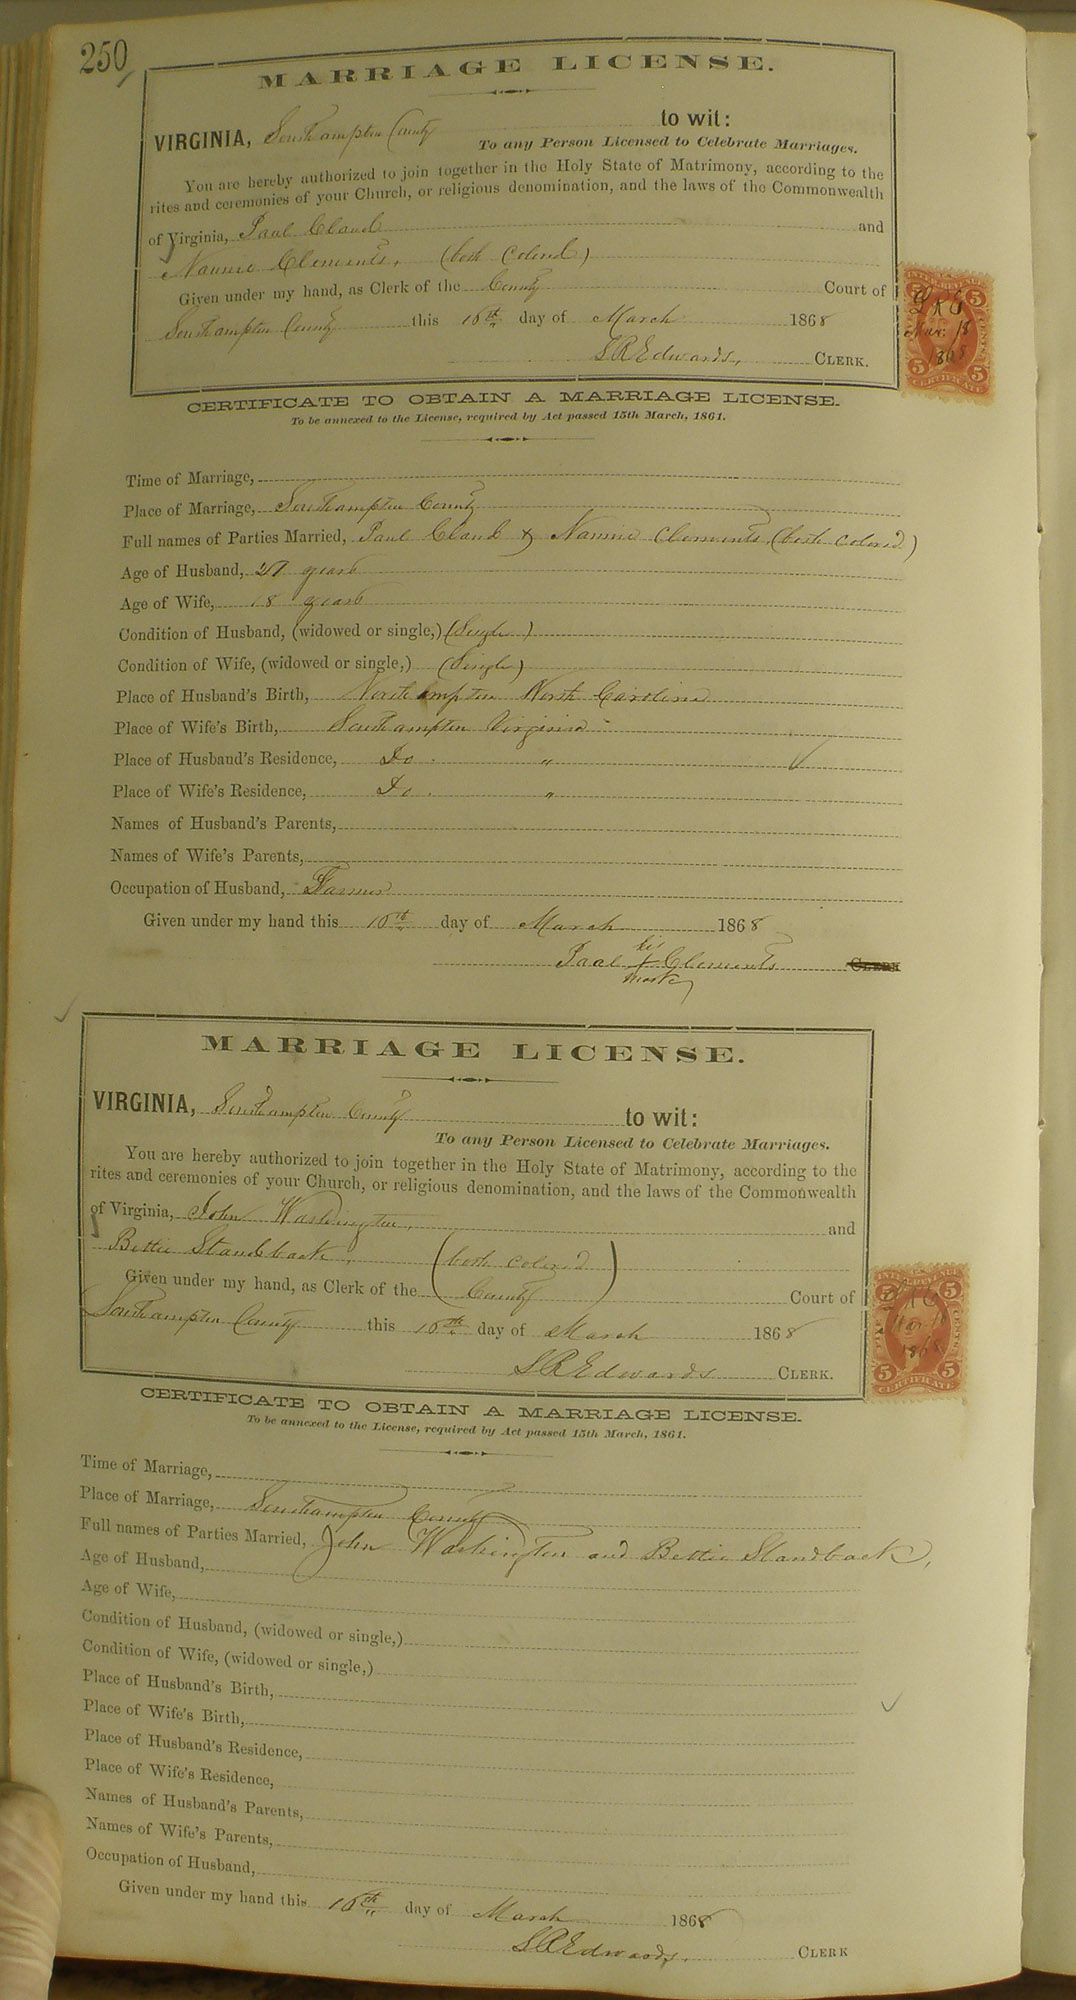 250
MARRIAGE LICENSE.
VIRGINIA, Southampton County to wit:
To any Person Licensed to Celebrate Marriages.
You are hereby authorized to join together in the Holy State of Matrimony, according to the
rites and ceremonies of your Church, or religious denomination, and the laws of the Commonwealth
of Virginia, Paul Claud and
Nannie Clements, (both colored)
Given under my hand, as Clerk of the County Court of
Southampton County this 16th day of March 1868
L R Edwards, CLERK.
INTER. REVENUE
5 5
FIVE CENTS
L R E
Mar. 18
1868
5 5
CERTIFICATE
CERTIFICATE TO OBTAIN A MARRIAGE LICENSE.
To be annexed to the License, required by Act passed 15th March, 1861.
Time of Marriage,
Place of Marriage, Southampton County
Full names of Parties Married, Paul Claud & Nannie Clements (both colored)
Age of Husband, 27 years
Age of Wife, 18 years
Condition of Husband, (widowed or single,) (Single)
Condition of Wife, (widowed or single,) (Single)
Place of Husband's Birth, Northampton North Carolina
Place of Wife's Birth, Southampton Virginia
Place of Husband's Residence, Do. "
Place of Wife's Residence, Do. "
Names of Husband's Parents,
Names of Wife's Parents,
Occupation of Husband, Farmer
Given under my hand this 16th day of March 1868
his
Paul X Clements CLERK
mark
MARRIAGE LICENSE.
VIRGINIA, Southampton County to wit:
To any Person Licensed to Celebrate Marriages.
You are hereby authorized to join together in the Holy State of Matrimony, according to the
rites and ceremonies of your Church, or religious denomination, and the laws of the Commonwealth
of Virginia, John Washington, and
Bettie Standback, (both colored)
Given under my hand, as Clerk of the County Court of
Southampton County this 16th day of March 1868
L R Edwards CLERK.
INTER. REVENUE
5 5
FIVE CENTS
1868
5 5
CERTIFICATE
CERTIFICATE TO OBTAIN A MARRIAGE LICENSE.
To be annexed to the License, required by Act passed 15th March, 1861.
Time of Marriage,
Place of Marriage, Southampton County
Full names of Parties Married, John Washington and Bettie Standback,
Age of Husband,
Age of Wife,
Condition of Husband, (widowed or single,)
Condition of Wife, (widowed or single,)
Place of Husband's Birth,
Place of Wife's Birth,
Place of Husband's Residence,
Place of Wife's Residence,
Names of Husband's Parents,
Names of Wife's Parents,
Occupation of Husband,
Given under my hand this 16th day of March 1868
L R Edwards. CLERK